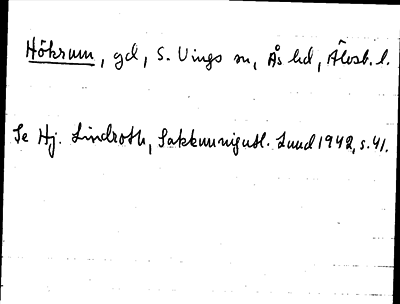 Hökrum, gd, S. Vings sn, Ås hd, Älvsb. l.
Se Hj. Lindroth, Sakkunnigutl. Lund 1942, s. 41.